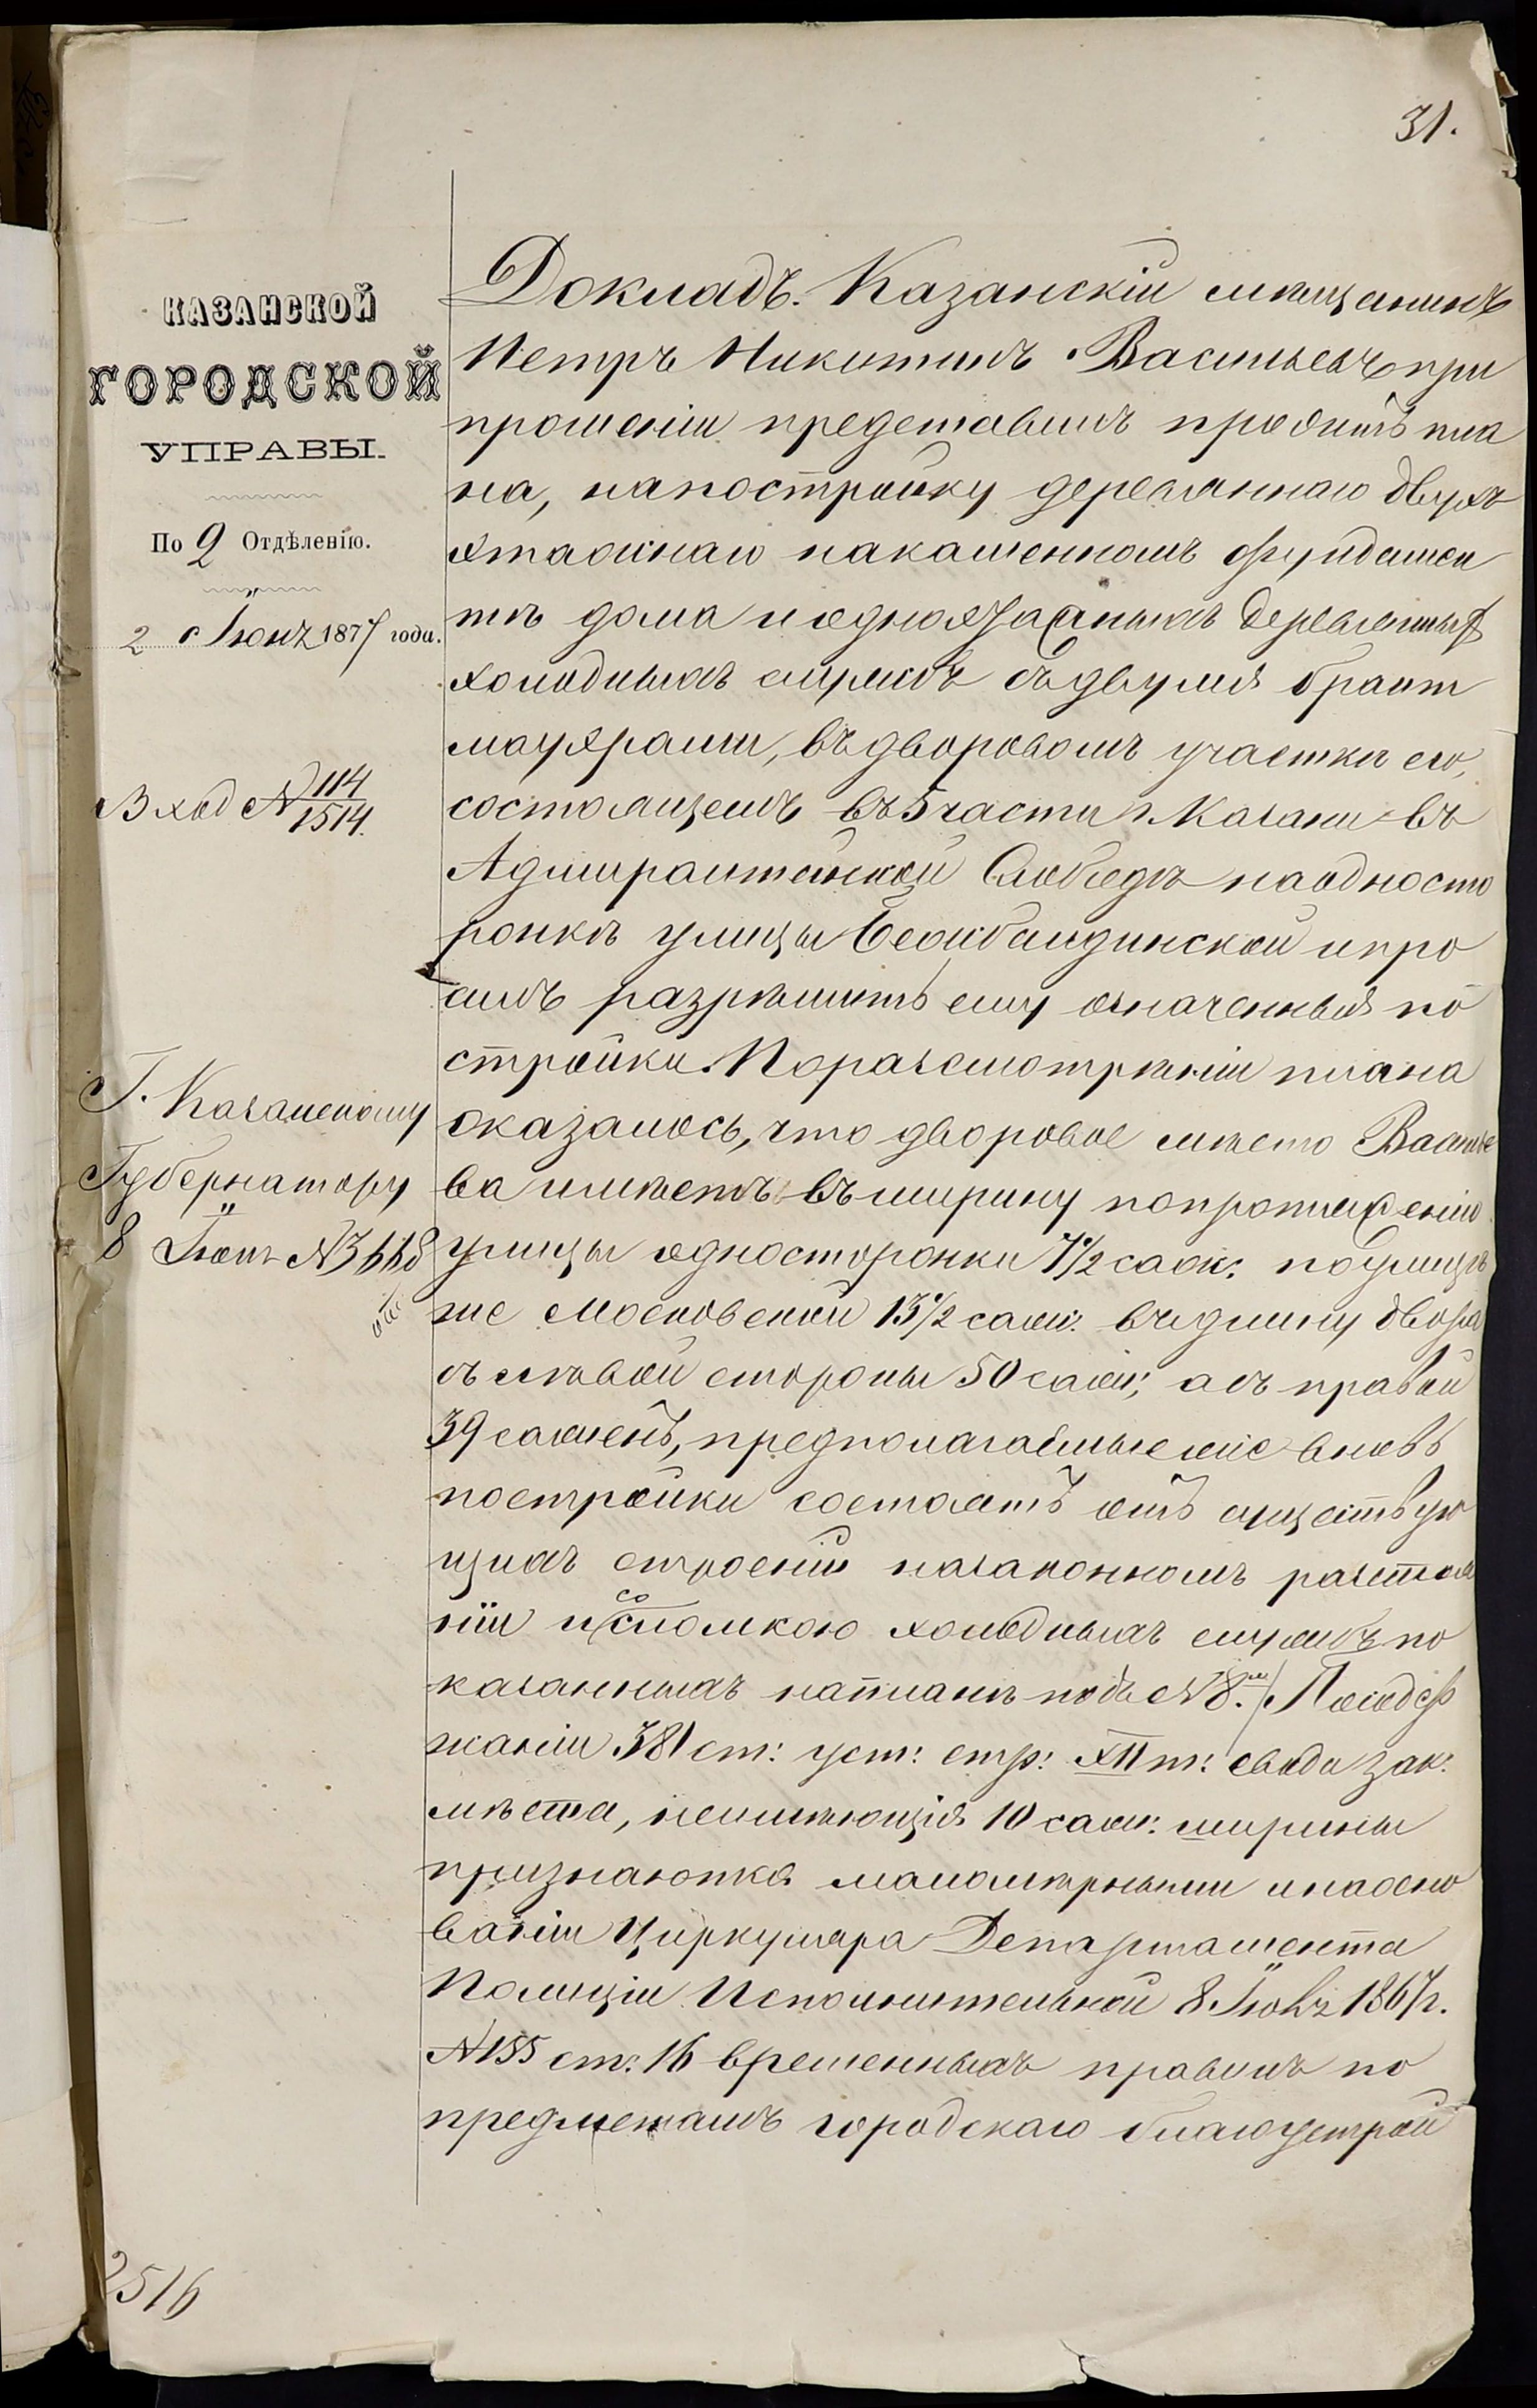 31.
КАЗАНСКОЙ
ГОРОДСКОЙ
УПРАВЫ.
По 2 Отдѣленію.
2 Іюня 1877 года.
Вход № 114
1514.
Г. Казанскому
Губернатору
8 Іюня № 3668
Докладъ. Казанскій мѣщанинъ
Петръ Никитинъ Васильевъ при
прошеніи представилъ проэктъ пла
на, на постройку деревяннаго двухъ
этажнаго на каменномъ фундамен
тѣ дома и одноэтажныхъ деревянныхъ
холодныхъ службъ съ двумя брант
мауэрами, въ дворовомъ участкѣ его,
состоящемъ въ 5 части г. Казани въ
Адмиралтейской Слободѣ на односто
ронкѣ улицы Бежбалдинской и про
силъ разрѣшить ему означенныя по
стройки. По разсмотрѣніи плана
оказалось, что дворовое мѣсто Василье
ва имѣетъ въ ширину по протяженію
улицы односторонки 7 1/2 саж. по улицѣ
же Московской 13 1/2 саж. въ длину двора
съ лѣвой стороны 50 саж; а съ правой
39 саженъ, предполагаемые же вновь
постройки состоятъ отъ существую
щихъ строеній на законномъ разстоя
ніи и со сломкою холодныхъ службъ по
казанныхъ на планѣ подъ № 8.м По содер
жанію 381 ст: уст: стр: XII т: свода зак:
мѣста, неимѣющія 10 саж: ширины
признаются маломѣрными и на осно
ваніи Циркуляра Департамента
Полиціи Исполнительной 8 Іюня 1867 г.
№ 155 ст: 16 временныхъ правилъ по
предметамъ городскаго благоустрой
2516